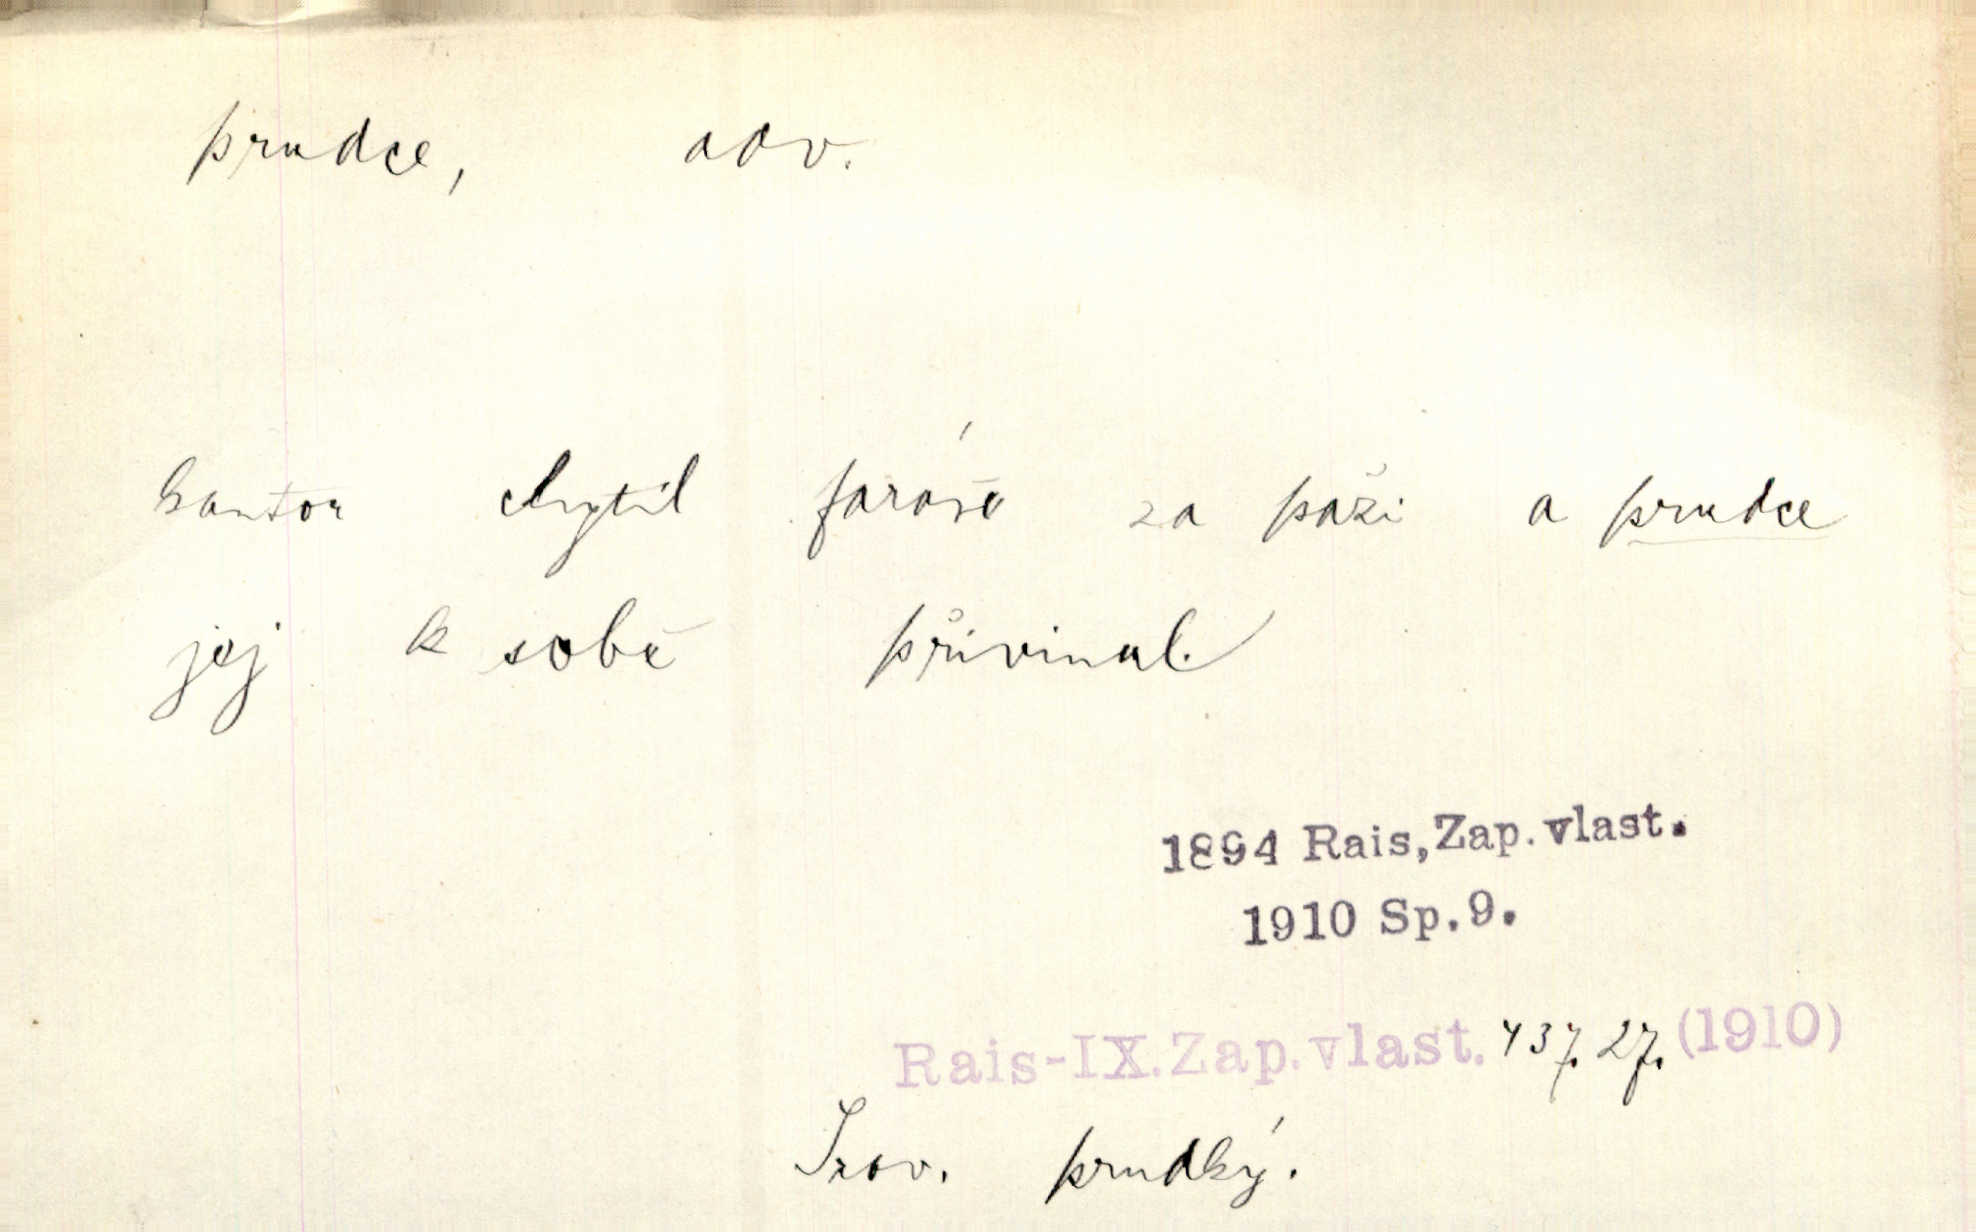 prudce, adv.
kantor chytil faráře za paži a prudce
jej k sobě přivinul.
1894 Rais, Zap. vlast.
1910 Sp. 9.
Rais-IX. Zap. vlast. 437. 27. (1910)
Srov. prudký.